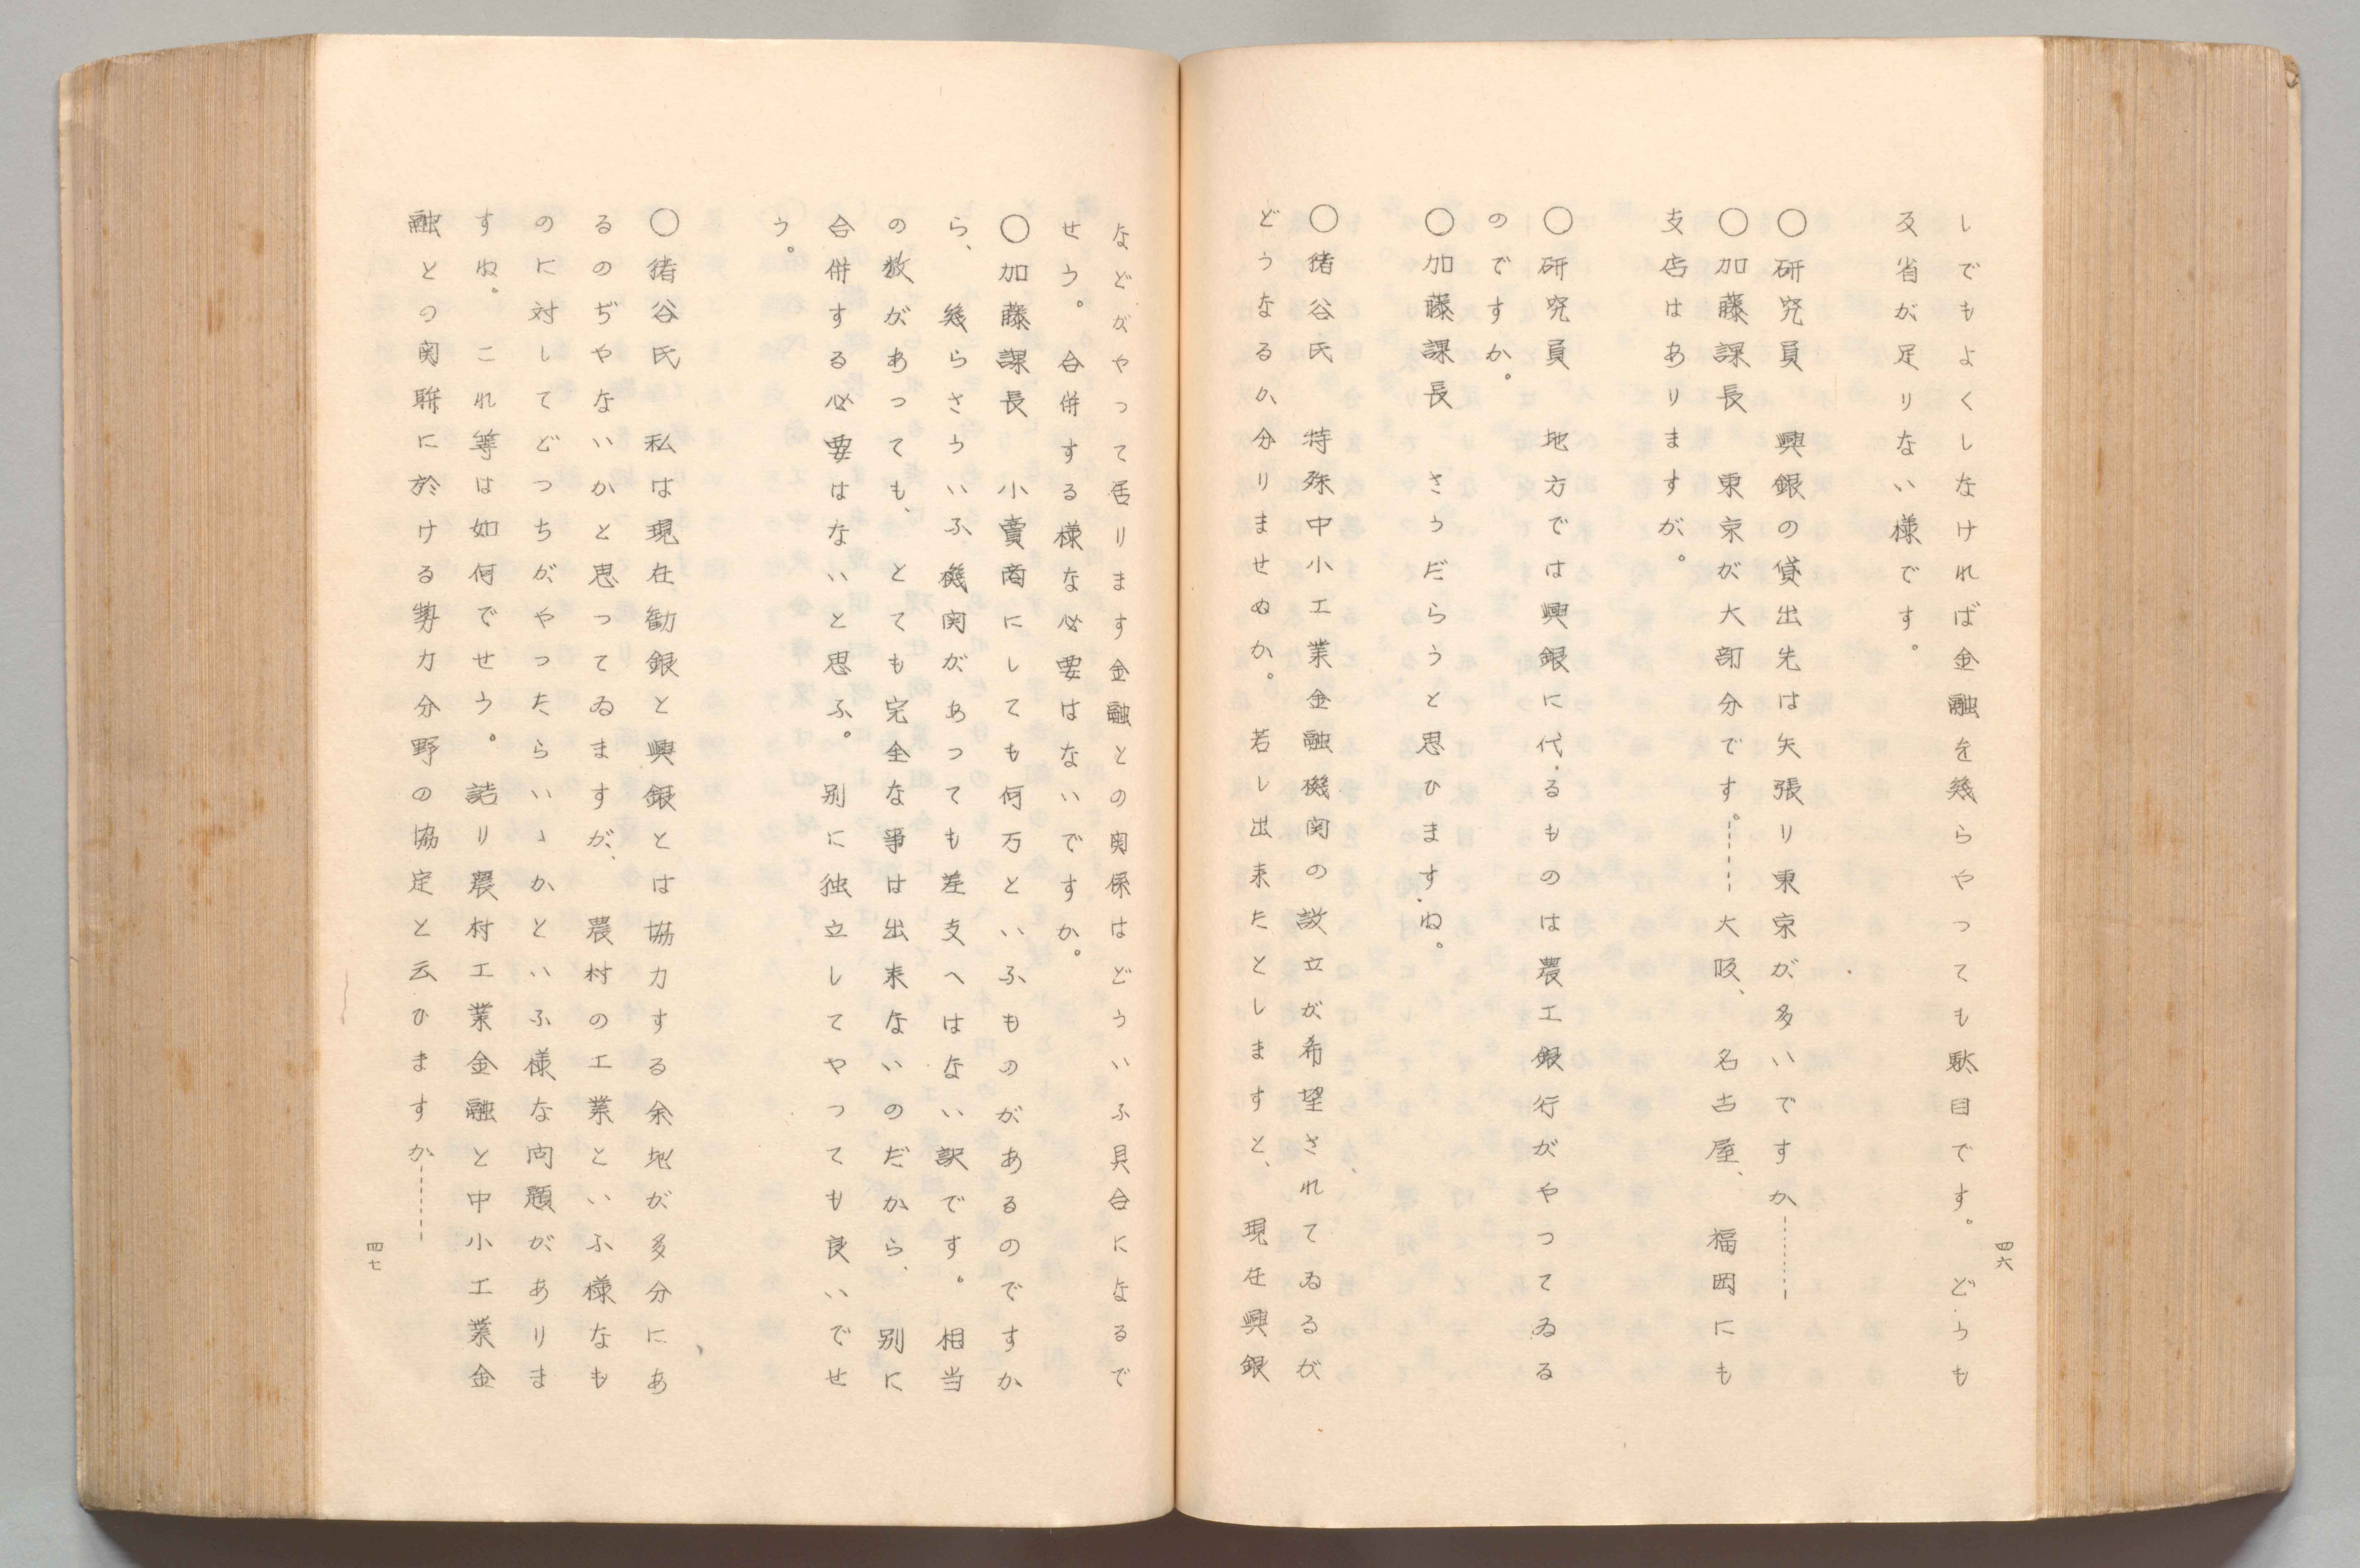 しでもよくしなければ金融を幾らやつても駄目です。どうも
反省が足りない様です。
○研究員　興銀の貸出先は矢張り東京が多いですか------
○加藤課長　東京が大部分です。------大阪、名古屋、福岡にも
支店はありますが。
○研究員　地方では興銀に代るものは農工銀行がやつてゐる
のですか。
○加藤課長　さうだらうと思ひますね。
○猪谷氏　特殊中小工業金融機関の設立が希望されてゐるが
どうなるか分りませぬか。若し出来たとしますと、現在興銀
四六
などがやって居ります金融との関係はどういふ具合になるで
せう。合併する様な必要はないですか。
○加藤課長　小賣商にしても何万といふものがあるのですか
ら、幾らさういふ機関があつても差支へはない訳です。相当
の数があっても、とても完全な事は出来ないのだから、別に
合併する必要はないと思ふ。別に独立してやつても良いでせ
う。
○猪谷氏　私は現在勧銀と興銀とは協力する余地が多分にあ
るのぢやないかと思ってゐますが、農村の工業といふ様なも
のに対してどつちがやつたらいゝかといふ様な問題がありま
すね。これ等は如何でせう。詰り農村工業金融と中小工業金
融との関聯に於ける勢力分野の協定と云ひますか------
四七